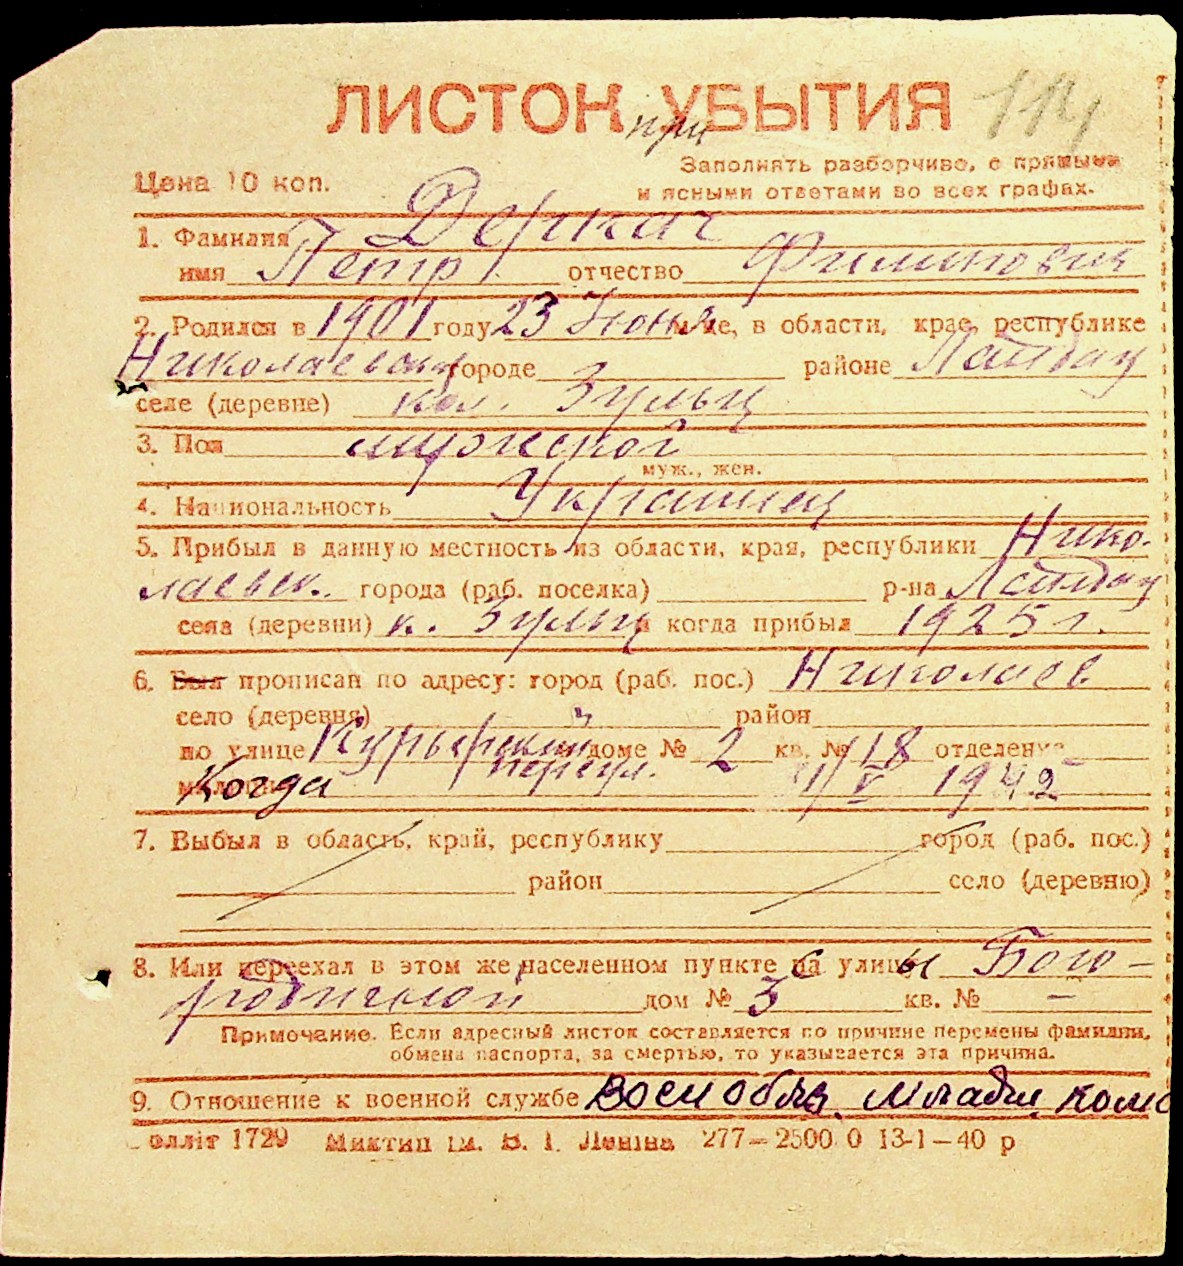 ЛИСТОК УБЫТИЯ 114
при
Заполнять разборчиво, с прямыми
Цена 10 коп. и ясными ответами во всех графах.
1. Фамилия Деркач
имя Петр отчество Филипович
2. Родился в 1901 году 23 Июня м-це, в области, крае, республике
Николаевск городе районе Ландау
селе (деревне) кол. Зульц
3. Пол мужской
муж., жен.
4. Национальность Украинец
5. Прибыл в данную местность из области, края, республики Нико-
лаевск. города (раб. поселка) р-на Ландау
села (деревни) к. Зульц и когда прибыл 1925 г.
6. Был прописан по адресу: город (раб. пос.) Николаев
село (деревня) район
по улице Курьерский в доме № 2 кв. № 18 отделение
переул.
милиции Когда 11/V 1942
7. Выбыл в область, край, республику город (раб. пос.)
район село (деревню)
8. Или переехал в этом же населенном пункте на улицы Бого-
родичной дом № 3 кв. № —
Примечание. Если адресный листок составляется по причине перемены фамилии,
обмена паспорта, за смертью, то указывается эта причина.
9. Отношение к военной службе Военобяз. Младш. Ком
елліт 1729 Миктип ім. В. І. Леніна 277—2500 0 13-1—40 р